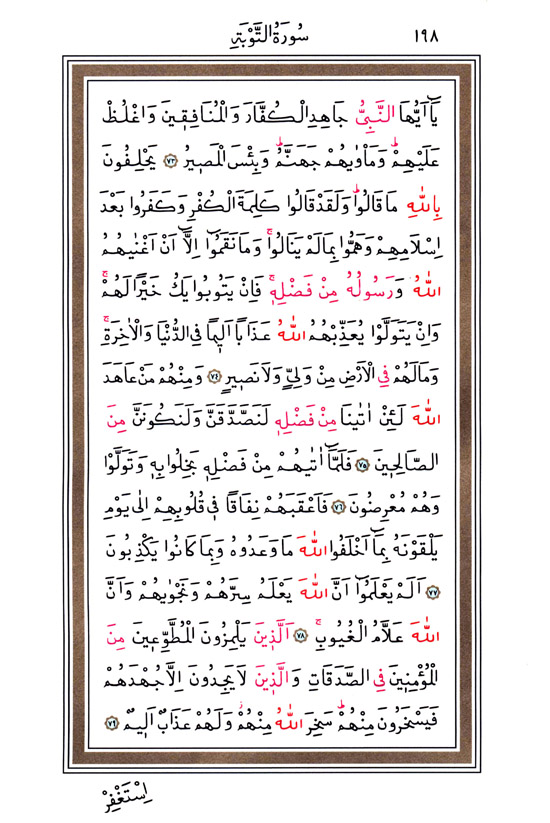 سُورَةُ التَّوْبَةِ ١٩٨
يَٓا اَيُّهَا النَّبِيُّ جَاهِدِ الْكُفَّارَ وَالْمُنَافِق۪ينَ وَاغْلُظْ
عَلَيْهِمْۜ وَمَأْوٰيهُمْ جَهَنَّمُۜ وَبِئْسَ الْمَص۪يرُ ﴿٧٣﴾ يَحْلِفُونَ
بِاللّٰهِ مَا قَالُواۜ وَلَقَدْ قَالُوا كَلِمَةَ الْكُفْرِ وَكَفَرُوا بَعْدَ
اِسْلَامِهِمْ وَهَمُّوا بِمَا لَمْ يَنَالُواۚ وَمَا نَقَمُٓوا اِلَّٓا اَنْ اَغْنٰيهُمُ
اللّٰهُ وَرَسُولُهُ مِنْ فَضْلِه۪ۚ فَاِنْ يَتُوبُوا يَكُ خَيْراً لَهُمْۚ
وَاِنْ يَتَوَلَّوْا يُعَذِّبْهُمُ اللّٰهُ عَذَاباً اَل۪يماً فِي الدُّنْيَا وَالْاٰخِرَةِۚ
وَمَا لَهُمْ فِي الْاَرْضِ مِنْ وَلِيٍّ وَلَا نَص۪يرٍ ﴿٧٤﴾ وَمِنْهُمْ مَنْ عَاهَدَ
اللّٰهَ لَئِنْ اٰتٰينَا مِنْ فَضْلِه۪ لَنَصَّدَّقَنَّ وَلَنَكُونَنَّ مِنَ
الصَّالِح۪ينَ ﴿٧٥﴾ فَلَمَّٓا اٰتٰيهُمْ مِنْ فَضْلِه۪ بَخِلُوا بِه۪ وَتَوَلَّوْا
وَهُمْ مُعْرِضُونَ ﴿٧٦﴾ فَاَعْقَبَهُمْ نِفَاقاً ف۪ي قُلُوبِهِمْ اِلٰى يَوْمِ
يَلْقَوْنَهُ بِمَٓا اَخْلَفُوا اللّٰهَ مَا وَعَدُوهُ وَبِمَا كَانُوا يَكْذِبُونَ
﴿٧٧﴾ اَلَمْ يَعْلَمُٓوا اَنَّ اللّٰهَ يَعْلَمُ سِرَّهُمْ وَنَجْوٰيهُمْ وَاَنَّ
اللّٰهَ عَلَّامُ الْغُيُوبِۚ ﴿٧٨﴾ اَلَّذ۪ينَ يَلْمِزُونَ الْمُطَّوِّع۪ينَ مِنَ
الْمُؤْمِن۪ينَ فِي الصَّدَقَاتِ وَالَّذ۪ينَ لَا يَجِدُونَ اِلَّا جُهْدَهُمْ
فَيَسْخَرُونَ مِنْهُمْۜ سَخِرَ اللّٰهُ مِنْهُمْۘ وَلَهُمْ عَذَابٌ اَل۪يمٌ ﴿٧٩﴾
اِسْتَغْفِرْ